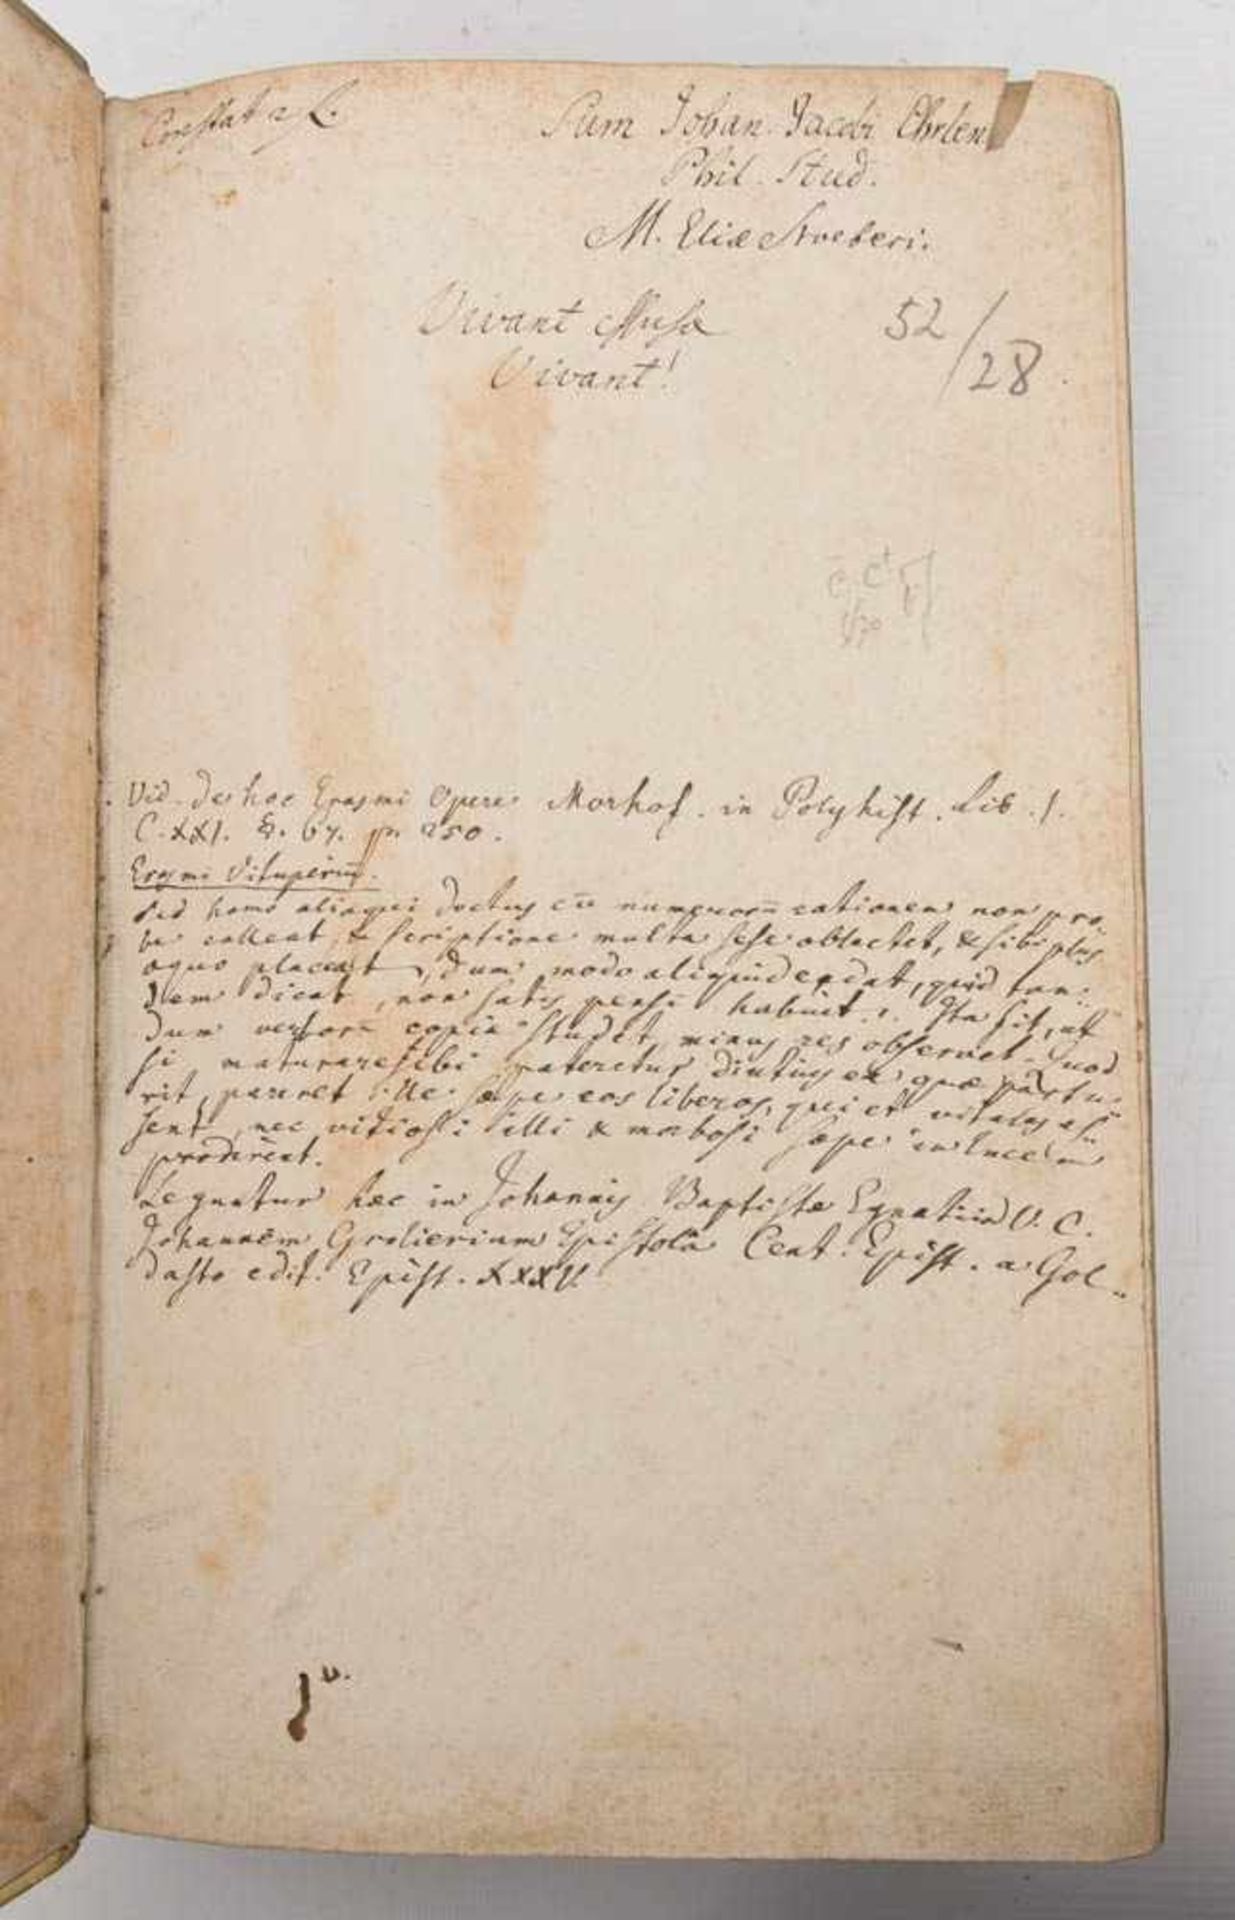 Constat 2 L.
Sum Johan. Jacobi Ehrlen
Phil. Stud.
M. Eliæ Stoeberi.
Vivant Musæ
Vivant!
52/28.
Vid. de hoc Erasmi Opere Morhof. in Polyhist. Lib. 1.
C. XXI. §. 67. p. 250.
Erasmi Vituperiū.
Sed homo alioqui doctus cū numerorū rationem non pro-
be calleat, & scriptione multa sese oblectet, & sibi plus
æquo placeat, dum modo aliquid edat, quid tan-
dem dicat, non satis pensi habuit. Ita fit, ut
dum verborū copiæ studet, minus res observet. Quod
si maturare sibi pateretur diutius ea quæ partu-
rit, pareret ille sæpe eos liberos, qui et vitales es-
sent, nec vitiosi illi & morbosi sæpe in lucem
prodirent.
Leguntur hæc in Johannis Baptistæ Egnatii V. C.
Johannem Grolierium Epistolâ Cent. Epist. a Gol-
dasto edit. Epist. XXXV.